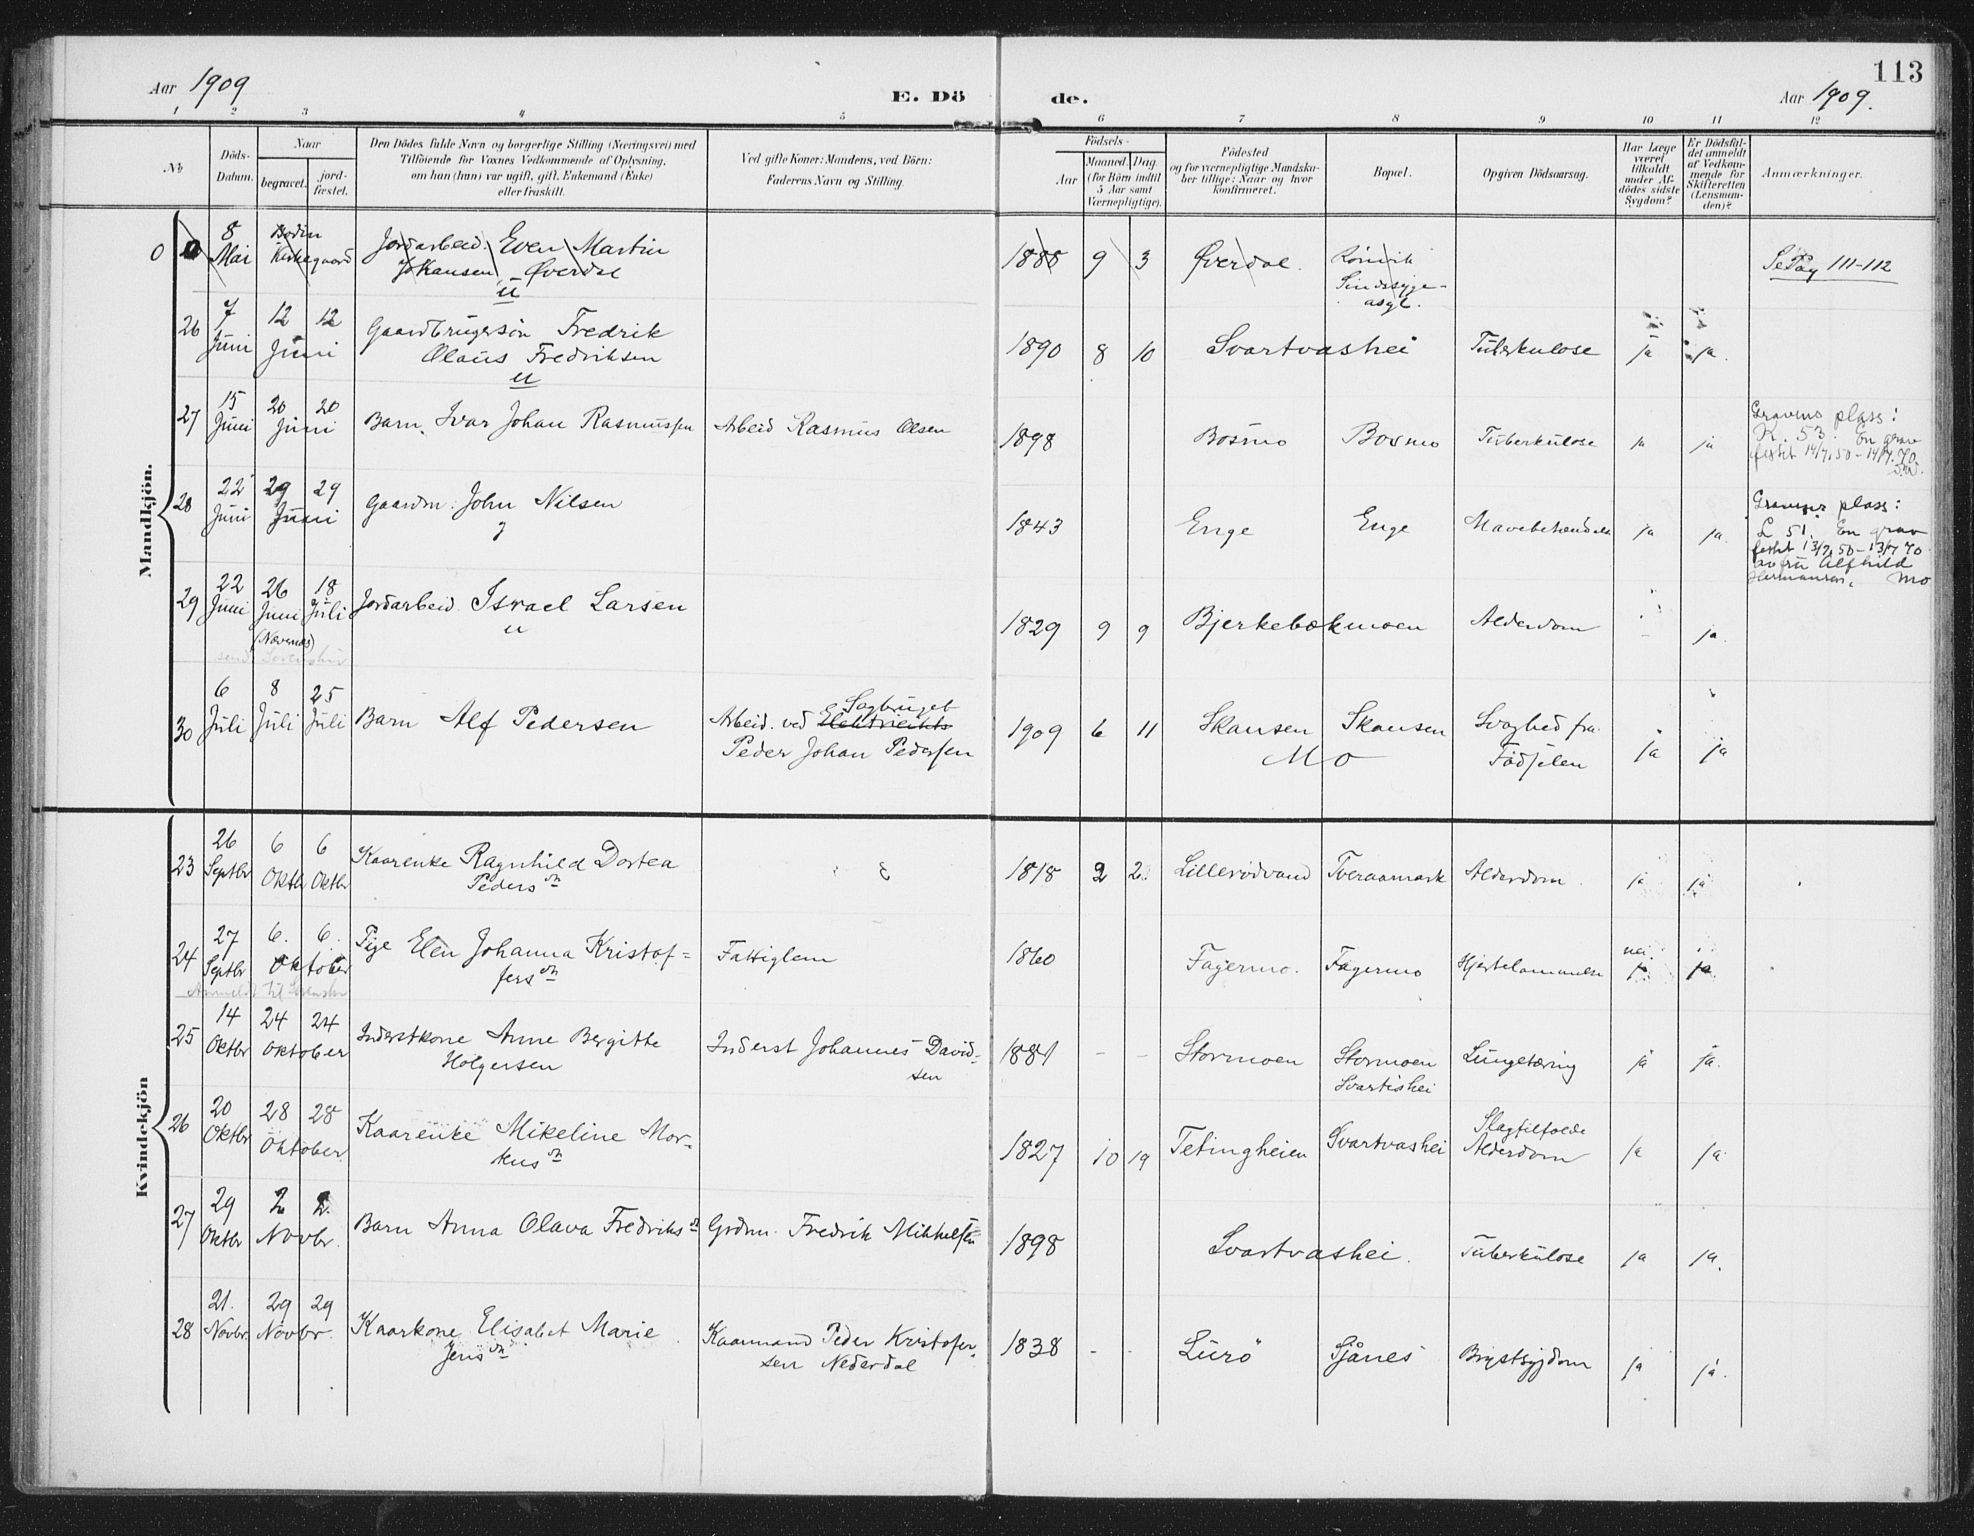 Aar 1909
E. Dö
de.
113
Aar 1909.
1 2 3 4 5 6 7 8 9 10 11 12
No
Döds-
Datum.
Naar
begravet.
jord-
fæstet.
Den Dödes fulde Navn og borgerlige Stilling (Næringsvei) med
Tilföiende for Voxnes Vedkommende af Oplysning,
om han (hun) var ugift, gift, Enkemand (Enke)
eller fraskilt.
Ved gifte Koner: Mandens, ved Börn:
Faderens Navn og Stilling.
Födsels-
Aar
Maaned. Dag.
(for Börn indtil
5 Aar samt
Værnepligtige).
Födested
og for værnepligtige Mandska-
ber tillige: Naar og hvor
konfirmeret.
Bopæl.
Opgiven Dödsaarsag.
Har Læge
været
tilkaldt
under Af-
dödes sidste
Sygdom?
Er Dödsfal-
det anmeldt
af Vedkom-
mende for
Skifteretten
(Lensman-
den)?
Anmærkninger.
Mandkjön.
0 8 Mai Bodin Kirkegaard Jordarbeid. Even Martin
Johansen Øverdal
u
1888 9 3 Øverdal. Rönvik
Sindssyge-
asyl.
Se Pag 111-112
26 7 Juni 12 12 Juni Gaardbrugersön Fredrik
Olaus Fredriksen
u
1890 8 10 Svartvashei Tuberkulose ja ja.
27 15 Juni 20 20 Juni Barn. Ivar Johan Rasmussen Arbeid Rasmus Olsen 1898 Bosmo Bosmo Tuberkulose ja ja
Gravens plass:
K. 53. En grav
festet 14/7.50-14/7.70
28 22 Juni 29 29 Juni Gaardm. John Nilsen
g
1843 Enge Enge Mavebetændelse ja ja.
Gravens plass:
L 51. En grav
festet 13/7.50-13/7 70
av fru Alfhild
Hermansen, Mo
29 22 Juni 26 Juni 18 Juli Jordarbeid. Israel Larsen
u
(Nævernes)
1829 9 9 Bjerkebækmoen Alderdom - ja.
30 6 Juli 8 Juli 25 Juli Barn Alf Pedersen Arbeid. ved Elektricitets Sagbruget
Peder Johan Pedersen
1909 6 11 Skansen Skansen
Mo
Svaghed fra
Födselen
ja ja
Kvindekjön
23 26 Septbr 6 Oktbr 6 Oktbr Kaarenke Ragnhild Dortea
Pedersdn
1818 2 2 Lillerödvand Tveraamark Alderdom. ja ja
24 27 Septbr 6. 6. Oktober Pige Elen Johanna Kristof-
fersdn
Fattiglem 1860 Fagermo. Fagermo Hjertelammelse nei ja ja
25 14 Oktbr 24 24 Oktober Inderstkone Anne Bergitte
Holgersen
Inderst Johannes David-
sen
1881 - - Stormoen Stormoen
Svartishei
Lungetæring ja ja.
26 20 Oktbr 28 28 Oktober Kaarenke Mikeline Mor-
kusdn
1827 10 19 Tetingheien Svartvashei Slagtilfælde
Alderdom
ja ja
27 29 Oktbr 2 2. Novbr. Barn Anna Olava Fredriksdn Grdm. Fredrik Mikkelsen 1898 Svartvashei. Tuberkulose ja ja.
28 21. Novbr. 29 29 Novbr. Kaarkone Elisabet Marie
Jensdn
Kaarmand Peder Kristofer-
sen Nederdal
1838 - - Lurö Sjånes Brystsygdom ja ja.